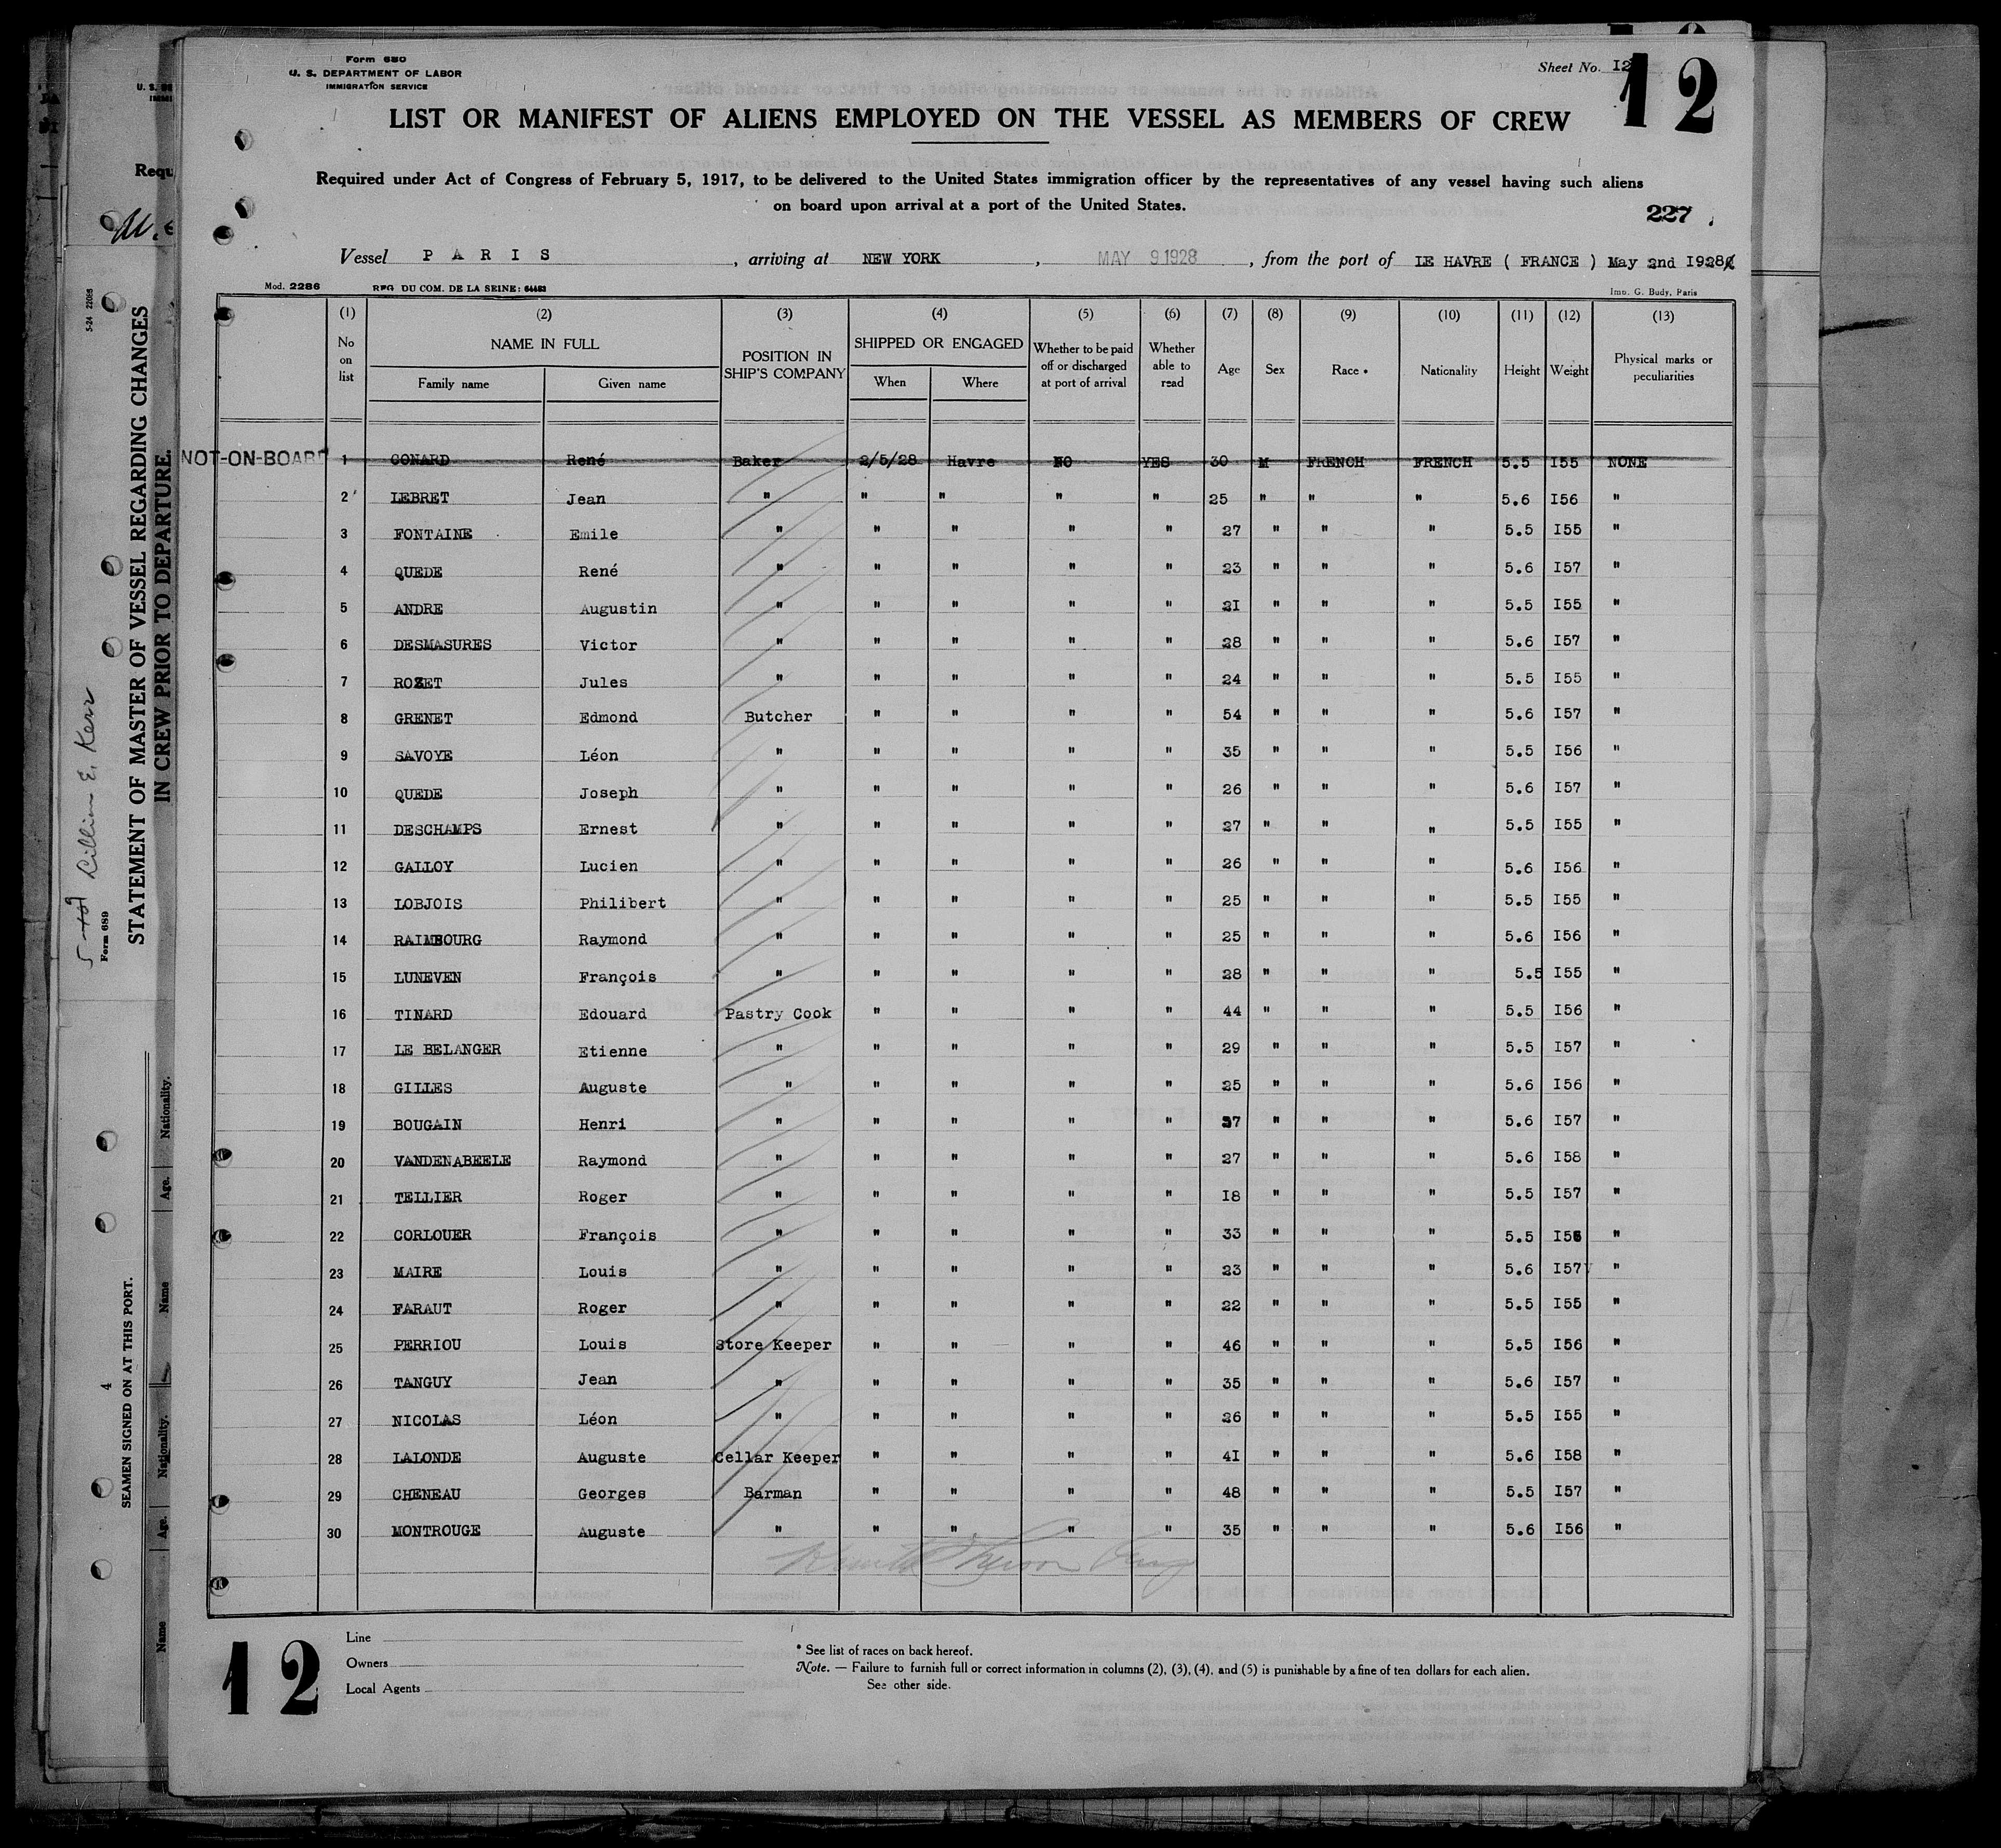 Form 680
U. S. DEPARTMENT OF LABOR
IMMIGRATION SERVICE
Sheet No. I2
12
LIST OR MANIFEST OF ALIENS EMPLOYED ON THE VESSEL AS MEMBERS OF CREW
Required under Act of Congress of February 5, 1917, to be delivered to the United States immigration officer by the representatives of any vessel having such aliens
on board upon arrival at a port of the United States.
227
Vessel P A R I S , arriving at NEW YORK , MAY 9 1928 , from the port of LE HAVRE ( FRANCE ) May 2nd I928
Mod. 2286 REG DU COM. DE LA SEINE: 64483 Imp. G. Budy, Paris
(1) (2) (3) (4) (5) (6) (7) (8) (9) (10) (11) (12) (13)
No on list NAME IN FULL Family name Given name POSITION IN SHIP'S COMPANY SHIPPED OR ENGAGED When Where Whether to be paid off or discharged at port of arrival Whether able to read Age Sex Race * Nationality Height Weight Physical marks or peculiarities
NOT-ON-BOARD 1 CONARD René Baker 2/5/28 Havre NO YES 30 M FRENCH FRENCH 5.5 I55 NONE
2 LEBRET Jean " " " " " 25 " " " 5.6 I56 "
3 FONTAINE Emile " " " " " 27 " " " 5.5 I55 "
4 QUEDE René " " " " " 23 " " " 5.6 I57 "
5 ANDRE Augustin " " " " " 2I " " " 5.5 I55 "
6 DESMASURES Victor " " " " " 28 " " " 5.6 I57 "
7 ROZET Jules " " " " " 24 " " " 5.5 I55 "
8 GRENET Edmond Butcher " " " " 54 " " " 5.6 I57 "
9 SAVOYE Léon " " " " " 35 " " " 5.5 I56 "
10 QUEDE Joseph " " " " " 26 " " " 5.6 I57 "
11 DESCHAMPS Ernest " " " " " 27 " " " 5.5 I55 "
12 GALLOY Lucien " " " " " 26 " " " 5.6 I56 "
13 LOBJOIS Philibert " " " " " 25 " " " 5.5 I55 "
14 RAIMBOURG Raymond " " " " " 25 " " " 5.6 I56 "
15 LUNEVEN François " " " " " 28 " " " 5.5 I55 "
16 TINARD Edouard Pastry Cook " " " " 44 " " " 5.5 I56 "
17 LE BELANGER Etienne " " " " " 29 " " " 5.5 I57 "
18 GILLES Auguste " " " " " 25 " " " 5.6 I56 "
19 BOUGAIN Henri " " " " " 37 " " " 5.6 I57 "
20 VANDENABEELE Raymond " " " " " 27 " " " 5.6 I58 "
21 TELLIER Roger " " " " " I8 " " " 5.5 I57 "
22 CORLOUER François " " " " " 33 " " " 5.5 I56 "
23 MAIRE Louis " " " " " 23 " " " 5.6 I57 "
24 FARAUT Roger " " " " " 22 " " " 5.5 I55 "
25 PERRIOU Louis Store Keeper " " " " 46 " " " 5.5 I56 "
26 TANGUY Jean " " " " " 35 " " " 5.6 I57 "
27 NICOLAS Léon " " " " " 26 " " " 5.5 I55 "
28 LALONDE Auguste Cellar Keeper " " " " 4I " " " 5.6 I58 "
29 CHENEAU Georges Barman " " " " 48 " " " 5.5 I57 "
30 MONTROUGE Auguste " " " " " 35 " " " 5.6 I56 "
12
Line
Owners
Local Agents
* See list of races on back hereof.
Note. — Failure to furnish full or correct information in columns (2), (3), (4), and (5) is punishable by a fine of ten dollars for each alien.
See other side.
Requ
5-24 22098
STATEMENT OF MASTER OF VESSEL REGARDING CHANGES
IN CREW PRIOR TO DEPARTURE.
Lillian E. Kerr
Form 689
4
SEAMEN SIGNED ON AT THIS PORT.
Name Age. Nationality. Name Age. Nationality.